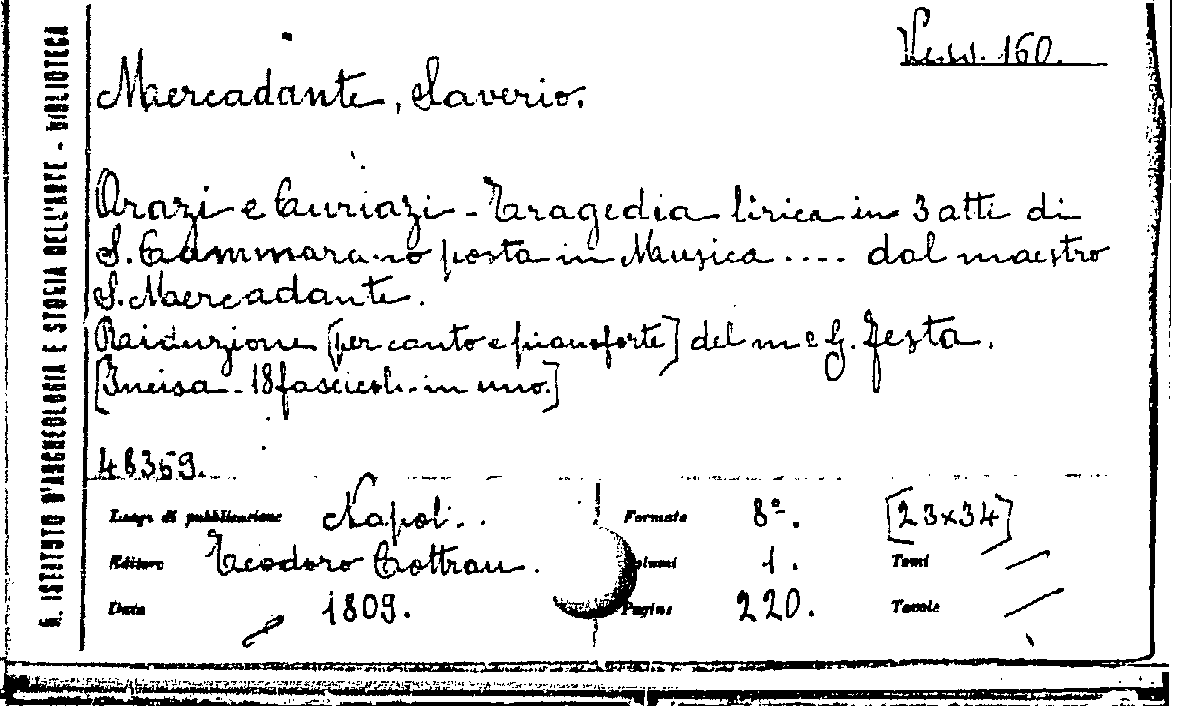 R. ISTITUTO D'ARCHEOLOGIA E STORIA DELL'ARTE - BIBLIOTECA
Vess. 160.
Mercadante, Saverio.
Orazi e Curiazi - Tragedia lirica in 3 atti di
S. Cammarano posta in Musica .... dal maestro
S. Mercadante.
Reiduzione [per canto e pianoforte] del m e G. Festa.
[Incisa - 18 fascicoli in uno.]
48369.
Luogo di pubblicazione Napoli. Formato 8º. [23x34]
Editore Teodoro Cottrau. Volumi 1. Tomi
Data 1809. Pagine 220. Tavole